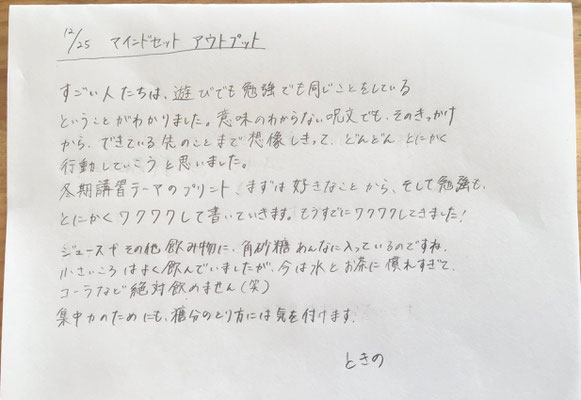 12/25 マインドセット アウトプット
すごい人たちは、遊びでも勉強でも同じことをしている
ということがわかりました。意味のわからない呪文でも、そのきっかけ
から、できている先のことまで想像しきって、どんどん とにかく
行動していこうと思いました。
冬期講習テーマのプリント、まずは好きなことから、そして勉強も、
とにかくワクワクして書いていきます。もうすでにワクワクしてきました!
ジュースやその他飲み物に、角砂糖あんなに入っているのですね。
小さいころはよく飲んでいましたが、今は水とお茶に慣れすぎて、
コーラなど絶対飲めません(笑)
集中力のためにも、糖分のとり方には気を付けます。
ときの